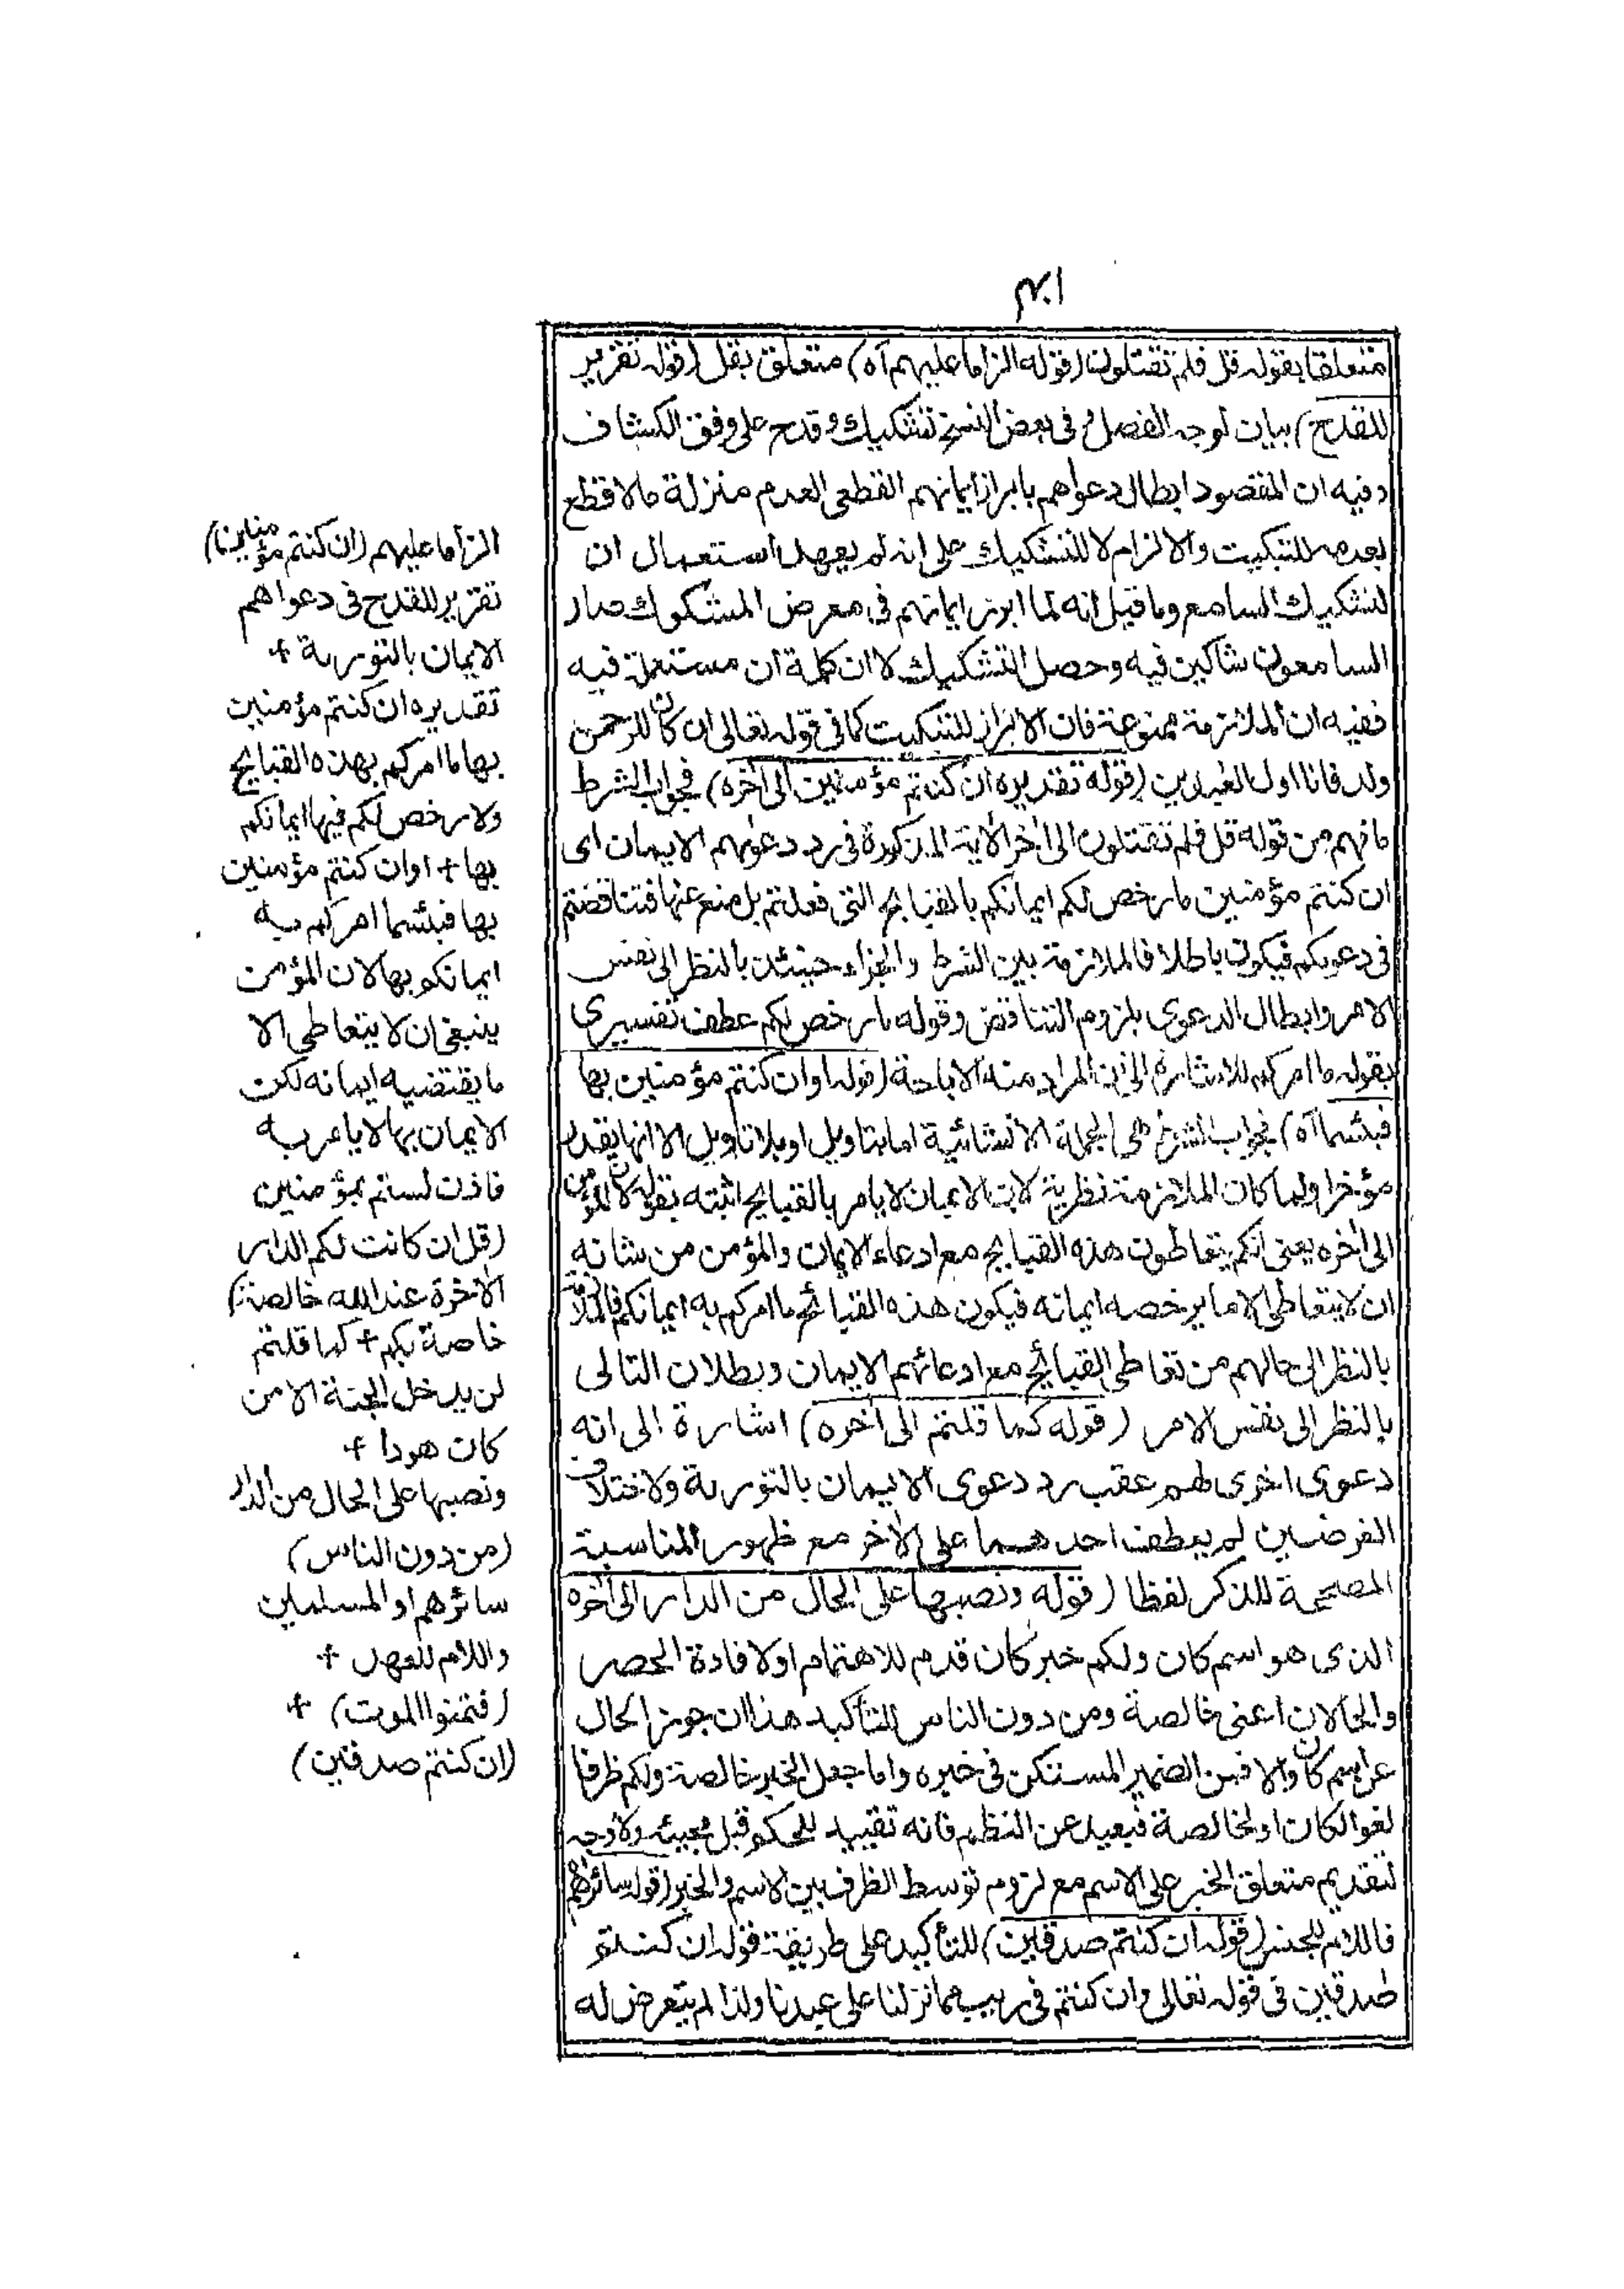 ٤٠١
متعلقا بقوله قل فلم تقتلون (قوله الزاما عليهم آه) متعلق بقل (قوله تقرير
للقدح) بيان لوجه الفصل وفى بعض النسخ تشكيك وقدح على وفق الكشاف
وفيه ان المقصود ابطال دعواهم بابراز ايمانهم القطعى العدم منزلة مالا قطع
بعدمه للتبكيت والالزام لا للتشكيك على انه لم يعهد استعمال ان
لتشكيك السامع وما قيل انه لما ابرز ايمانهم فى معرض المشكوك صار
السامعون شاكين فيه وحصل التشكيك لا ان كلمة ان مستعملة فيه
ففيه ان الملازمة ممنوعة فان الابراز للتبكيت كما فى قوله تعالى ان كان للرحمن
ولد فانا اول العبدين (قوله تقديره ان كنتم مؤمنين الى آخره) فجواب الشرط
ما فهم من قوله قل فلم تقتلون الى آخر الآية المذكورة فى رد دعوىهم الايمان اى
ان كنتم مؤمنين ما رخص لكم ايمانكم بالقبايح التى فعلتم بل منع عنها فتناقضتم
فى دعويكم فيكون باطلا فالملازمة بين الشرط والجزاء حينئذ بالنظر الى نفس
الامر وابطال الدعوى بلزوم التناقض وقوله ما رخص لكم عطف تفسيرى
بقوله ما امركم للاشارة الى ان المراد منه الاباحة (قوله او ان كنتم مؤمنين بها
فبئسما آه) فجواب الشرط هى الجملة الانشائية اما بتاويل او بلا تاويل الا انها يقدر
مؤخرا ولما كان الملازمة نظرية لان الايمان لا يامر بالقبايح اثبته بقوله لان المؤمن
الى آخره يعنى انكم يتعاطون هذه القبايح مع ادعاء الايمان والمؤمن من شانه
ان لا يتعاطى الا ما يرخصه ايمانه فيكون هذه القبائح ما امركم به ايمانكم فالملازمة
بالنظر الى حالهم من تعاطى القبائح مع ادعائهم الايمان وبطلان التالى
بالنظر الى نفس الامر (قوله كما قلتم الى آخره) اشارة الى انه
دعوى اخرى لهم عقب رد دعوى الايمان بالتورىة ولاختلاف
الغرضين لم يعطف احدهما على الآخر مع ظهور المناسبة
المصححة للذكر لفظا (قوله ونصبها على الحال من الدار الى آخره
الذى هو اسم كان ولكم خبر كان قدم للاهتمام او لافادة الحصر
والحالان اعنى خالصة ومن دون الناس للتأكيد هذا ان جوز الحال
عن اسم كان والا فمن الضمير المستكن فى خبره واما جعل الخبر خالصة ولكم ظرفا
لغوا لكان او لخالصة فبعيد عن النظم فانه تقييد للحكم قبل مجيئه ولا وجه
لتقديم متعلق الخبر على الاسم مع لزوم توسط الظرف بين الاسم والخبر (قوله سائرهم
فاللام للجنس (قوله ان كنتم صدقين) للتأكيد على طريقة قوله ان كنتم
صدقين فى قوله تعالى وان كنتم فى ريب مما نزلنا على عبدنا ولذا لم يتعرض له
الزاما عليهم (ان كنتم مؤمنين)
تقرير للقدح فى دعواهم
الايمان بالتورىة +
تقديره ان كنتم مؤمنين
بها ما امركم بهذه القبايح
ولا رخص لكم فيها ايمانكم
بها + او ان كنتم مؤمنين
بها فبئسما امركم به
ايمانكم بها لان المؤمن
ينبغى ان لا يتعاطى الا
ما يقتضيه ايمانه لكن
الايمان بها لا يامر به
فاذن لستم بمؤمنين
(قل ان كانت لكم الدار
الآخرة عند الله خالصة)
خاصة بكم + كما قلتم
لن يدخل الجنة الا من
كان هودا +
ونصبها على الحال من الدار
(من دون الناس)
سائرهم او المسلمين
واللام للعهد +
(فتمنوا الموت) +
(ان كنتم صدقين)